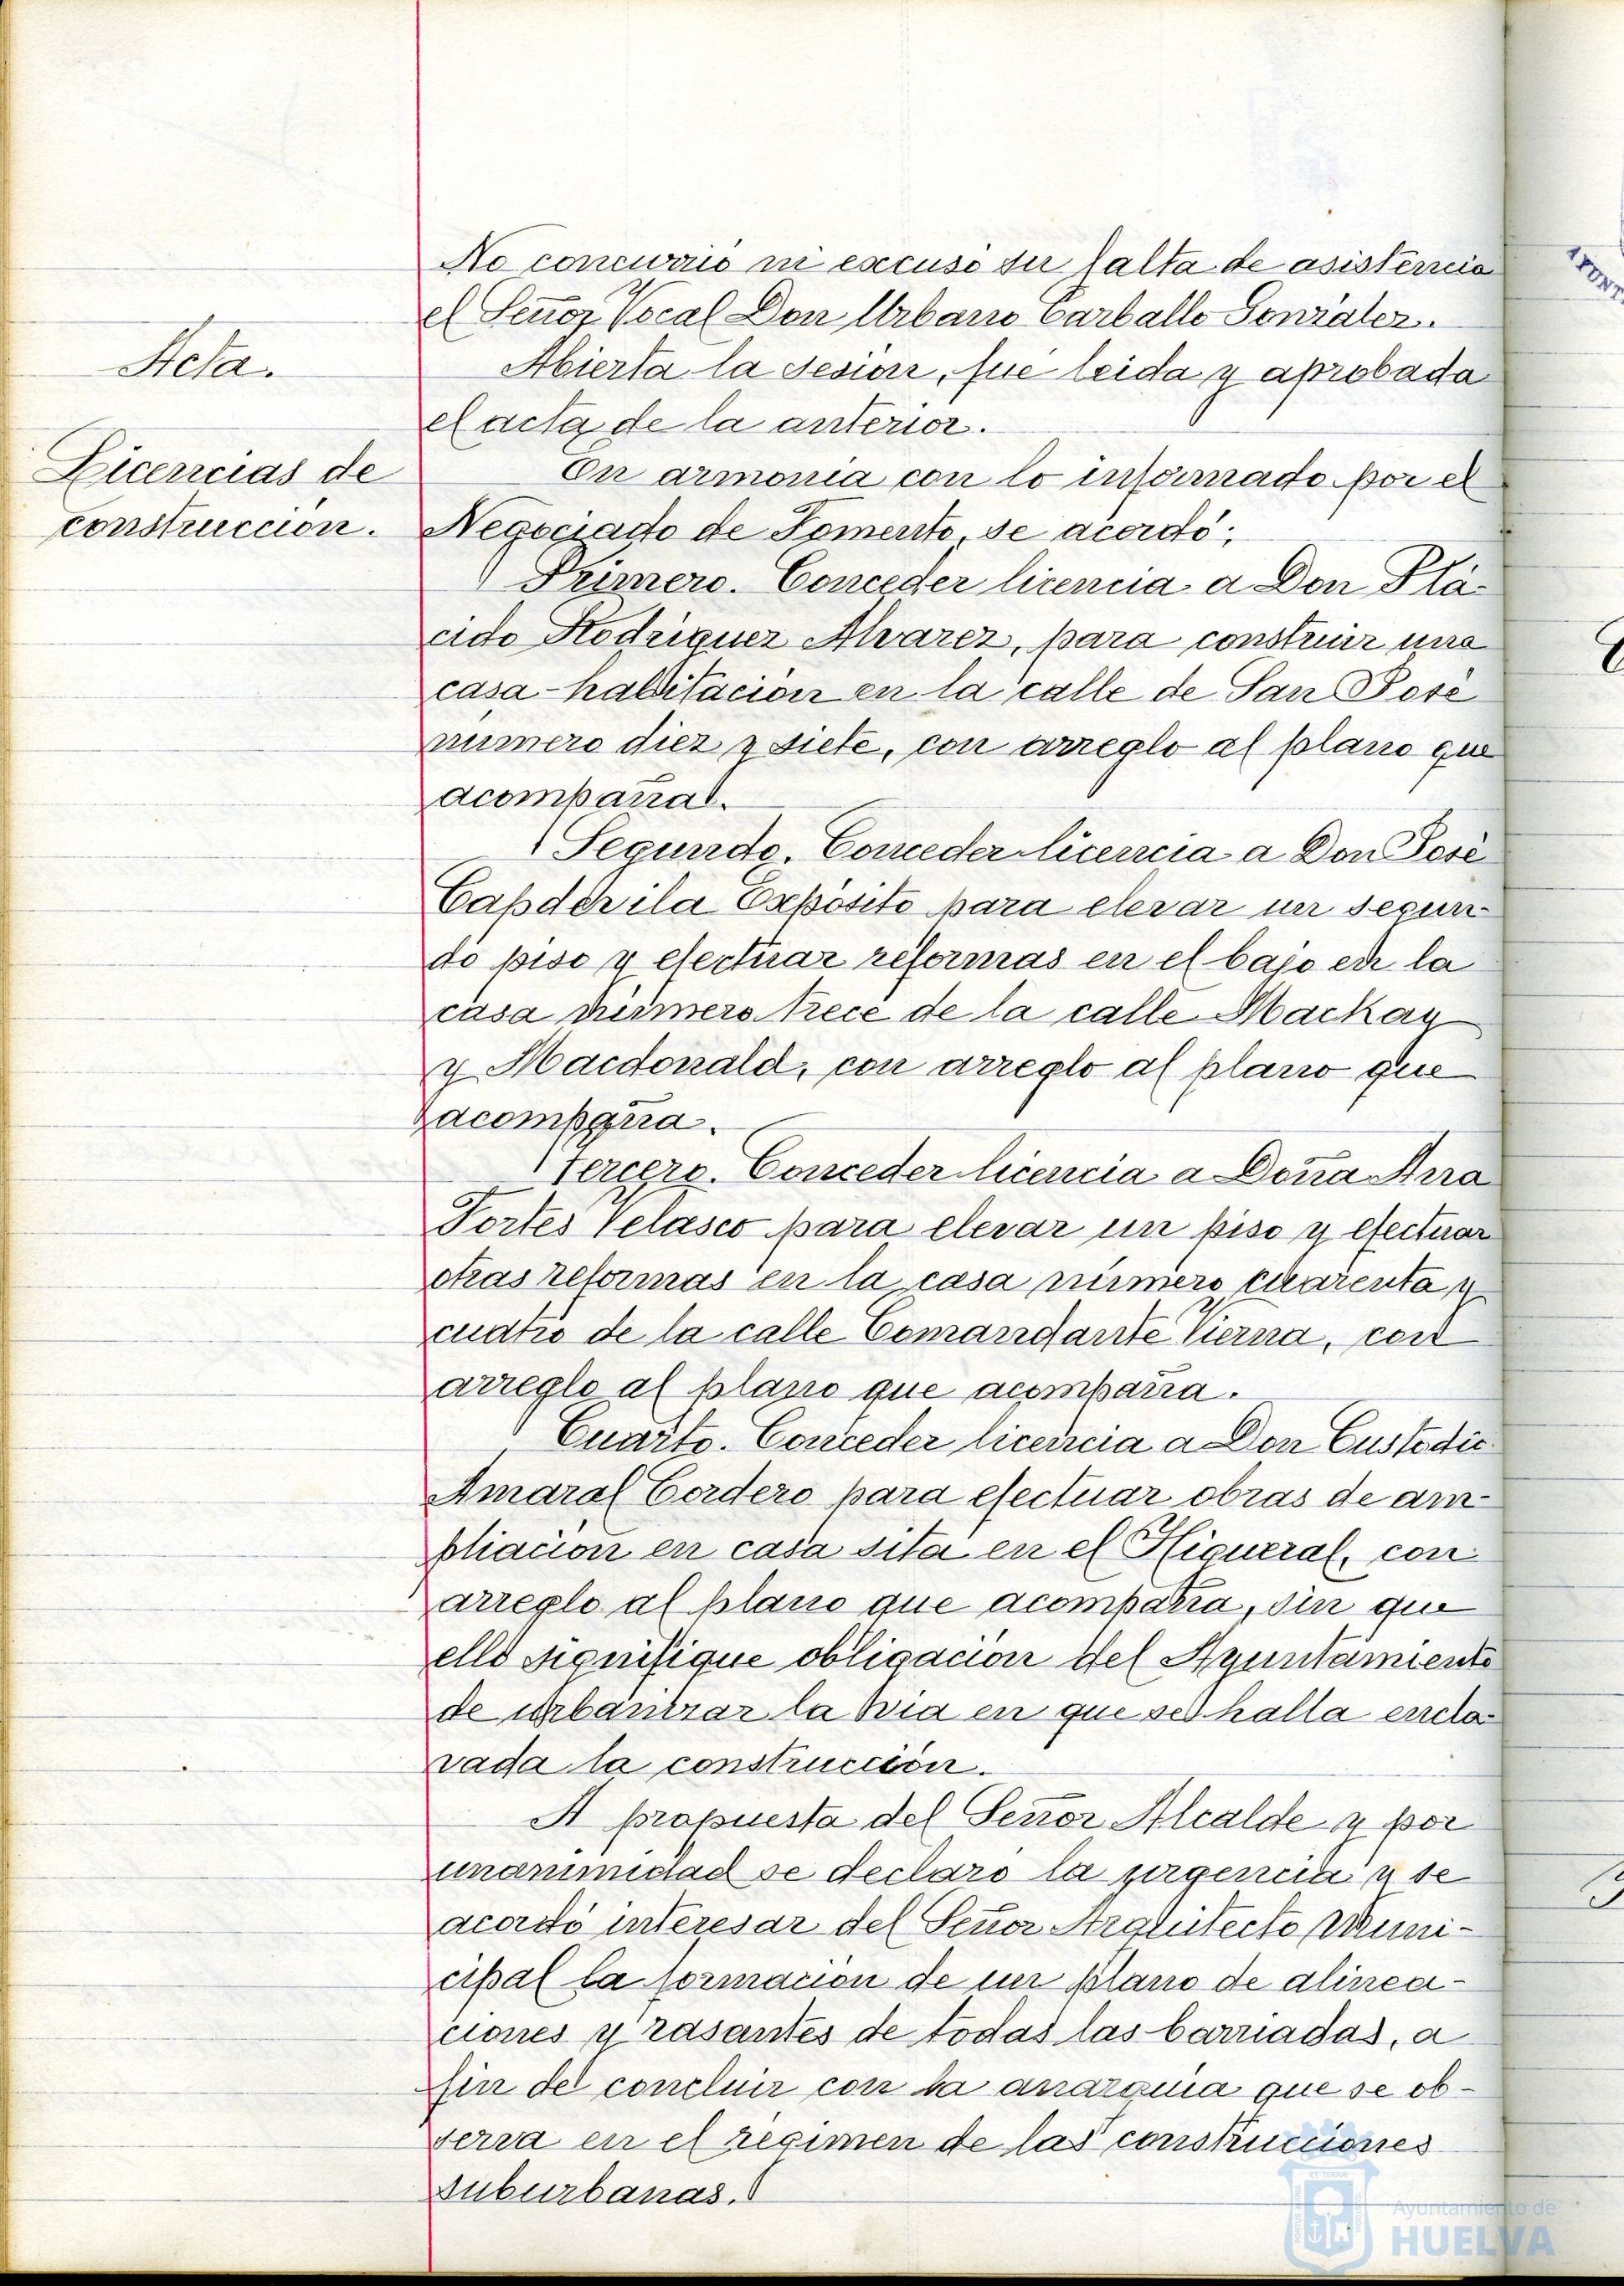 No concurrió ni excusó su falta de asistencia
el Señor Vocal Don Urbano Carballo González.
Acta.
Abierta la sesión, fué leida y aprobada
el acta de la anterior.
Licencias de
construcción.
En armonía con lo informado por el
Negociado de Fomento, se acordó:
Primero. Conceder licencia a Don Plá-
cido Rodríguez Alvarez, para construir una
casa-habitación en la calle de San José
número diez y siete, con arreglo al plano que
acompaña.
Segundo. Conceder licencia a Don José
Capdevila Expósito para elevar un segun-
do piso y efectuar reformas en el bajo en la
casa número trece de la calle Mackay
y Macdonald, con arreglo al plano que
acompaña.
Tercero. Conceder licencia a Doña Ana
Fortes Velasco para elevar un piso y efectuar
otras reformas en la casa número cuarenta y
cuatro de la calle Comandante Vierna, con
arreglo al plano que acompaña.
Cuarto. Conceder licencia a Don Custodio
Amaral Cordero para efectuar obras de am-
pliación en casa sita en el Higueral, con
arreglo al plano que acompaña, sin que
ello signifique obligación del Ayuntamiento
de urbanizar la vía en que se halla encla-
vada la construcción.
A propuesta del Señor Alcalde y por
unanimidad se declaró la urgencia y se
acordó interesar del Señor Arquitecto Muni-
cipal la formación de un plano de alinea-
ciones y rasantes de todas las barriadas, a
fin de concluir con la anarquía que se ob-
serva en el régimen de las construcciones
suburbanas.
Ayuntamiento de
HUELVA